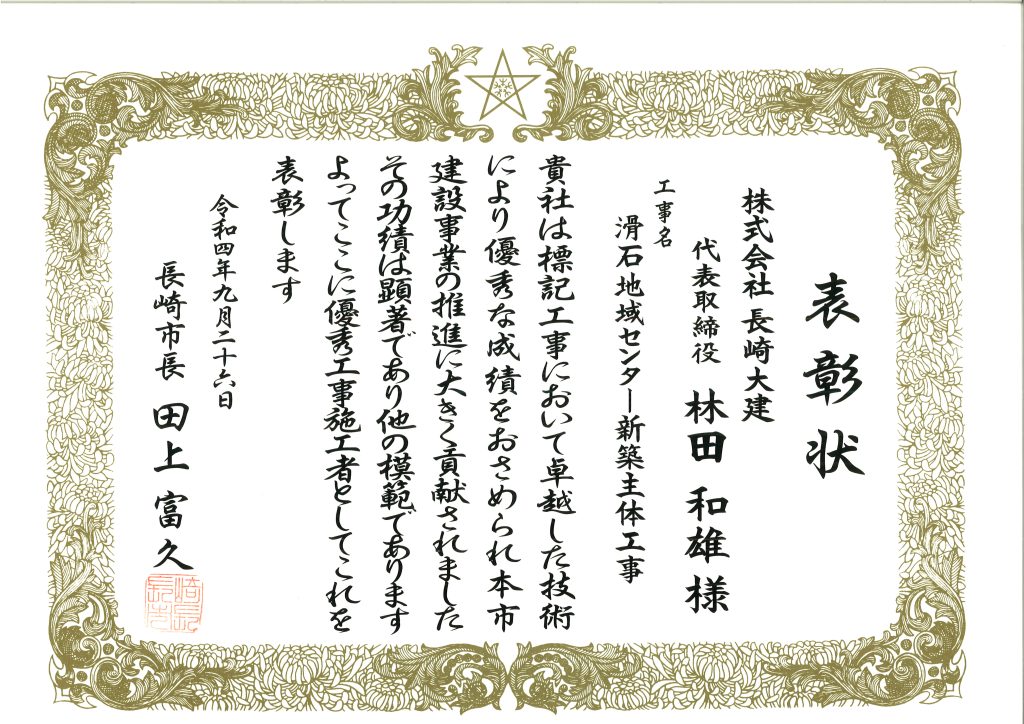 表彰状
株式会社 長崎大建
代表取締役 林田 和雄 様
工事名
滑石地域センター新築主体工事
貴社は標記工事において卓越した技術
により優秀な成績をおさめられ本市
建設事業の推進に大きく貢献されました
その功績は顕著であり他の模範であります
よってここに優秀工事施工者としてこれを
表彰します
令和四年九月二十六日
長崎市長 田上 富久